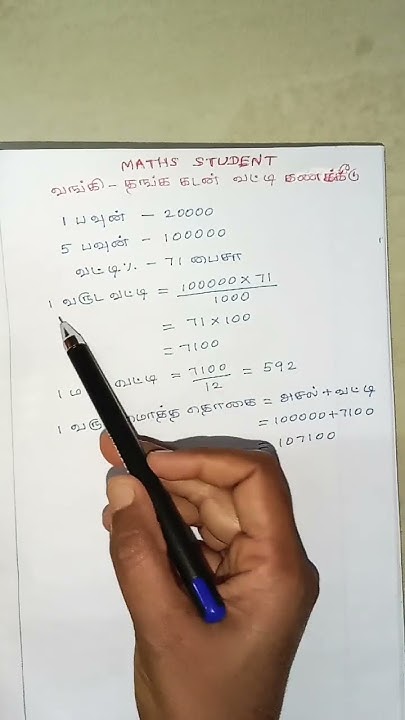 MATHS STUDENT
வங்கி - தங்க கடன் வட்டி கணக்கீடு
1 பவுன் - 20000
5 பவுன் - 100000
வட்டி% - 71 பைசா
1 வருட வட்டி = 100000 × 71 / 1000
= 71 × 100
= 7100
1 வட்டி = 7100 / 12 = 592
1 தொகை = அசல் + வட்டி
= 100000 + 7100
= 107100